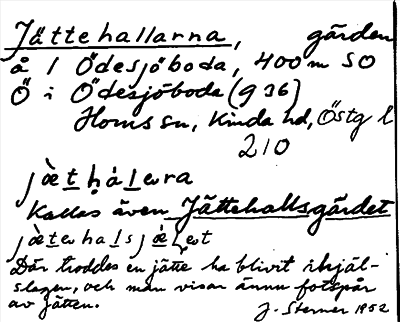 Jättehallarna, gärden
å 1 Ödesjöboda, 400 m SO
Ö i Ödesjöboda (936)
Horns sn, Kinda hd, Östg l
210
Kallas även Jättehallsgärdet
Där troddes en jätte ha blivit ihjäl-
slagen, och man visar ännu fotspår
av jätten.
J. Sterner 1952